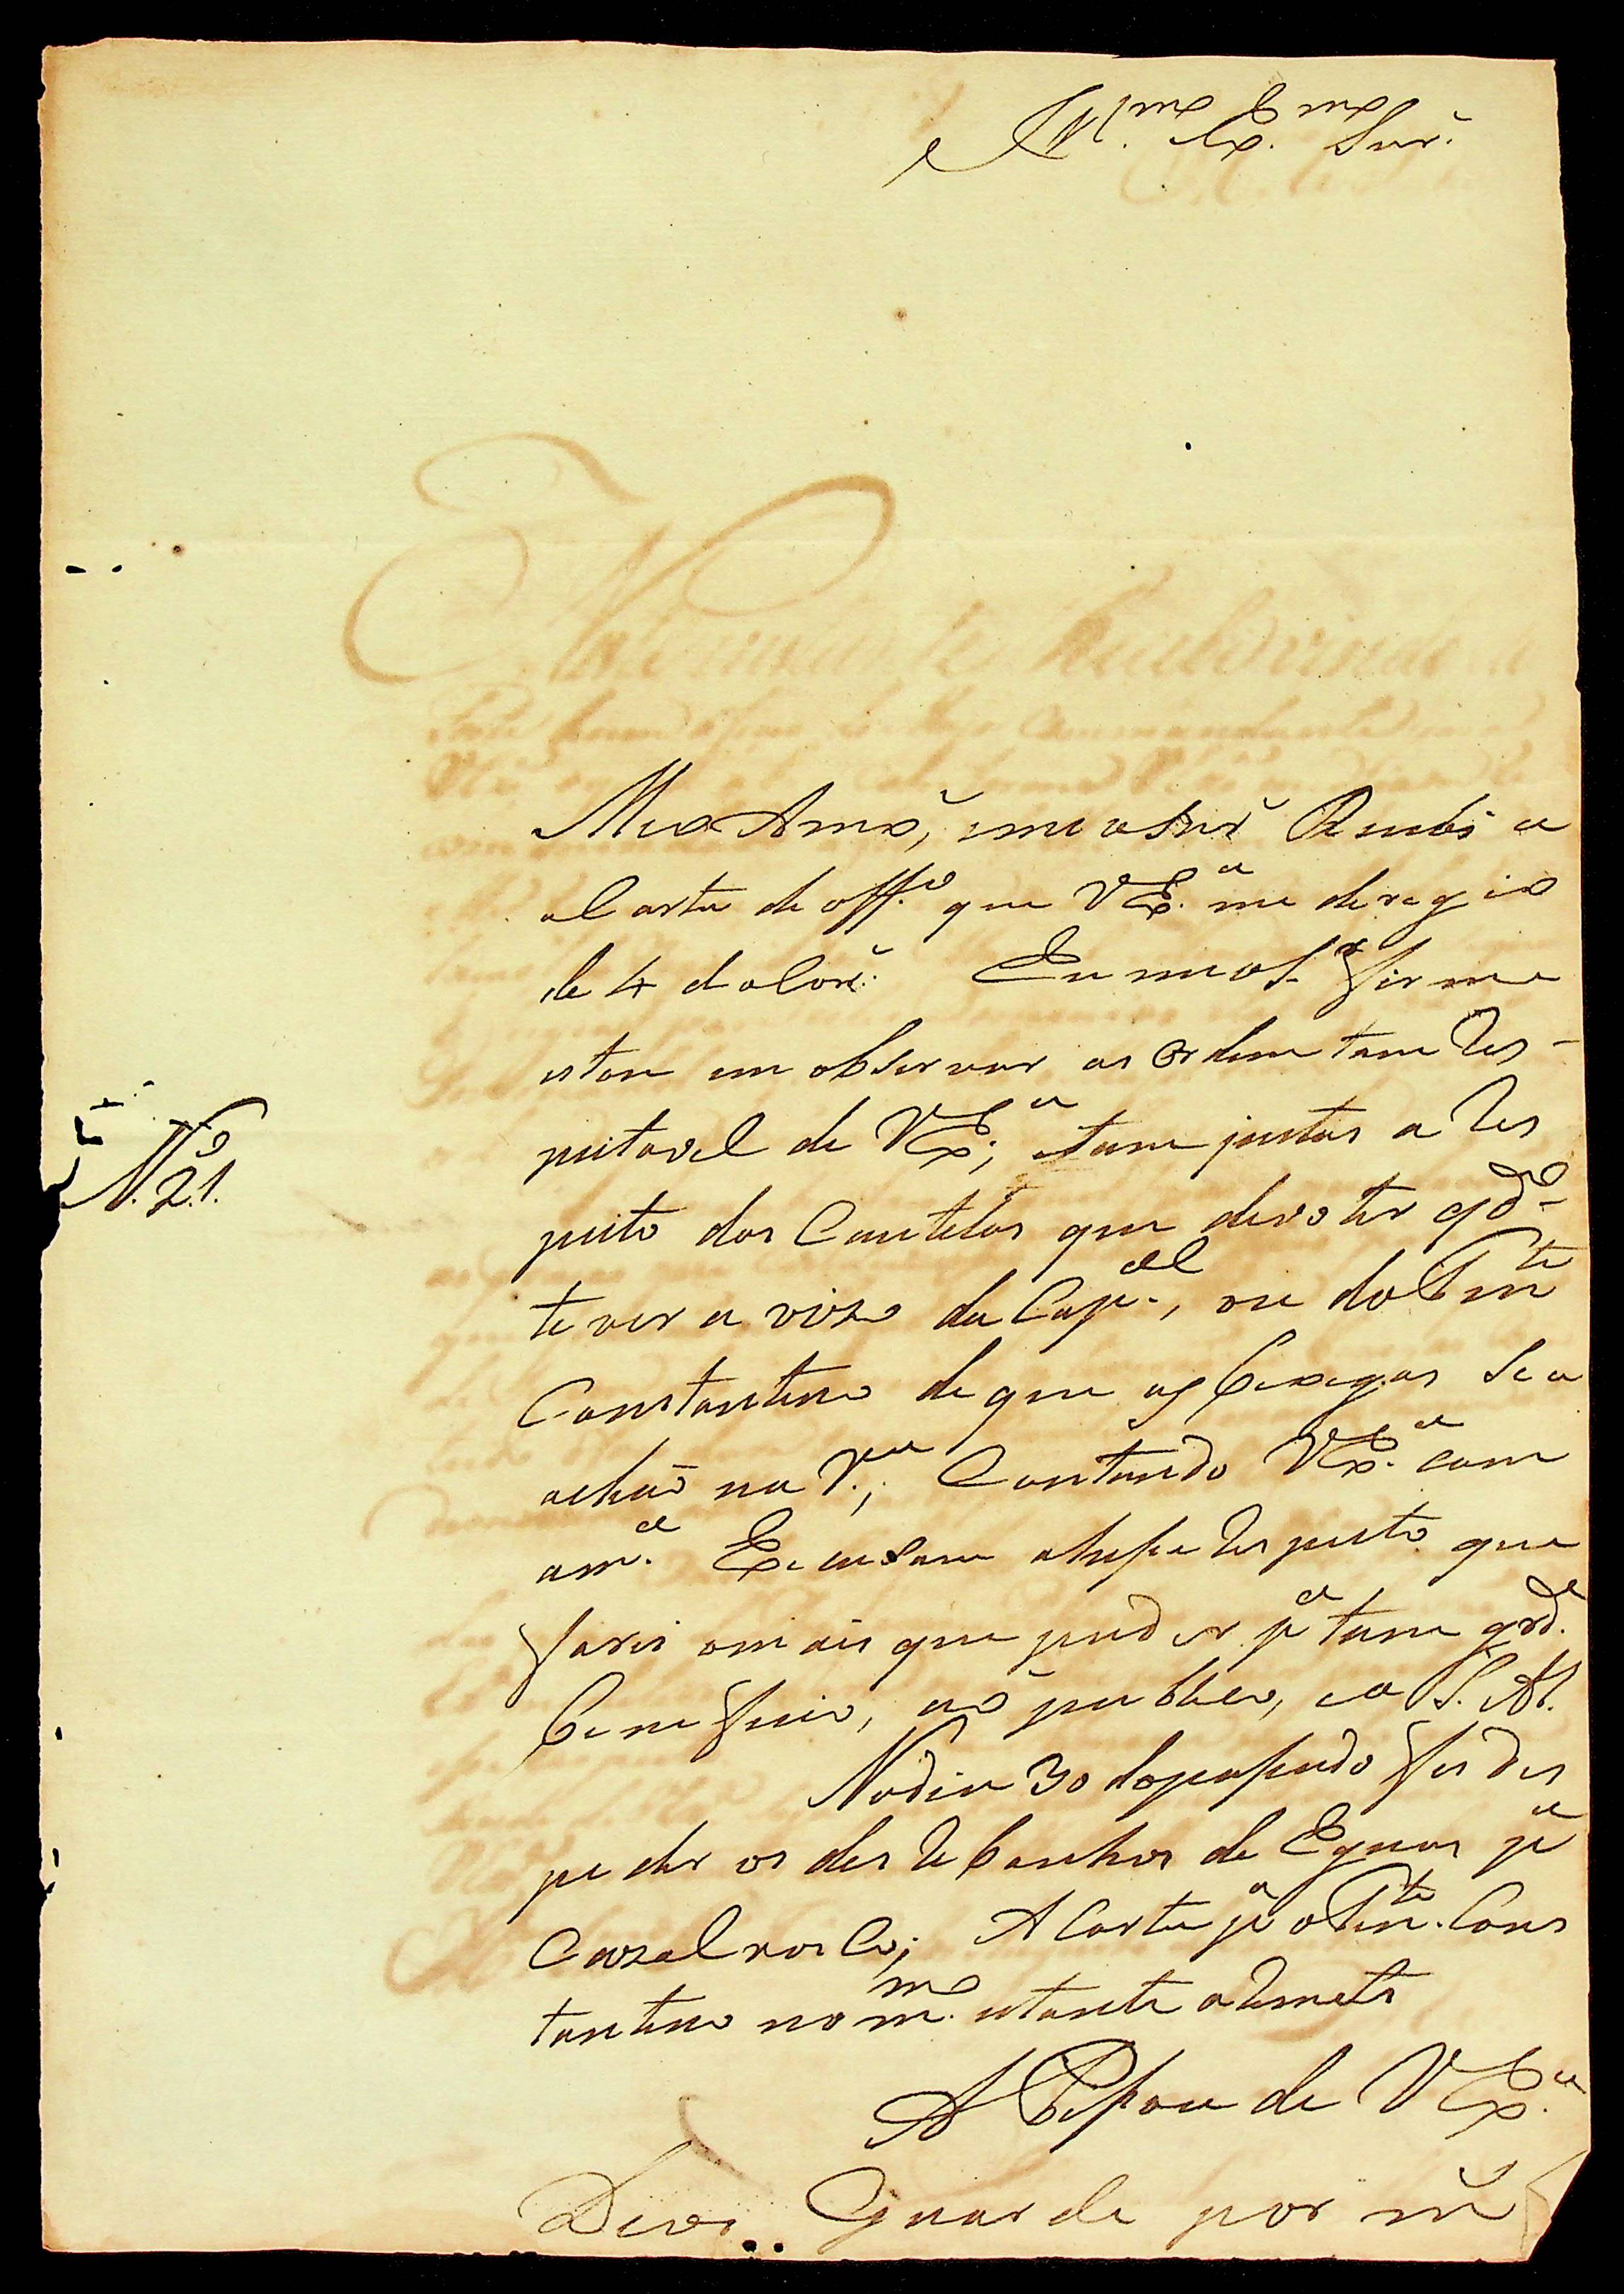 Ill.mo Ex.mo Snr.
Meo Amo, e meo Snr Recebi a
a Carta de off.o que VEx.a me deregio
de 4 do Corr. Eu meo S.r firme
estou em observar as Ordem tam Res-
peitavel de VEx.a; tam justas a Res
peito das Cautelas que devo ter qdo
tever a vizo da Cap.al, ou do Ten.te
Constantino de que as bexegas Se a
achaõ na V.a; Contando VEx.a com
am.a Execusam a tu respeito que
farei o mais que puder p.a tam grd.e
Beneficio, ao publico, e a S. A.
No dia 30 do passado fis des
pedir os des Rebanhos de Eguas p.a
Cazalvasco; A Carta p.a o Ten.te Cons
tantino no m.mo estante a Remeti
A Pessoa de VEx.a
Deos Guarde por m.
N.o 21.